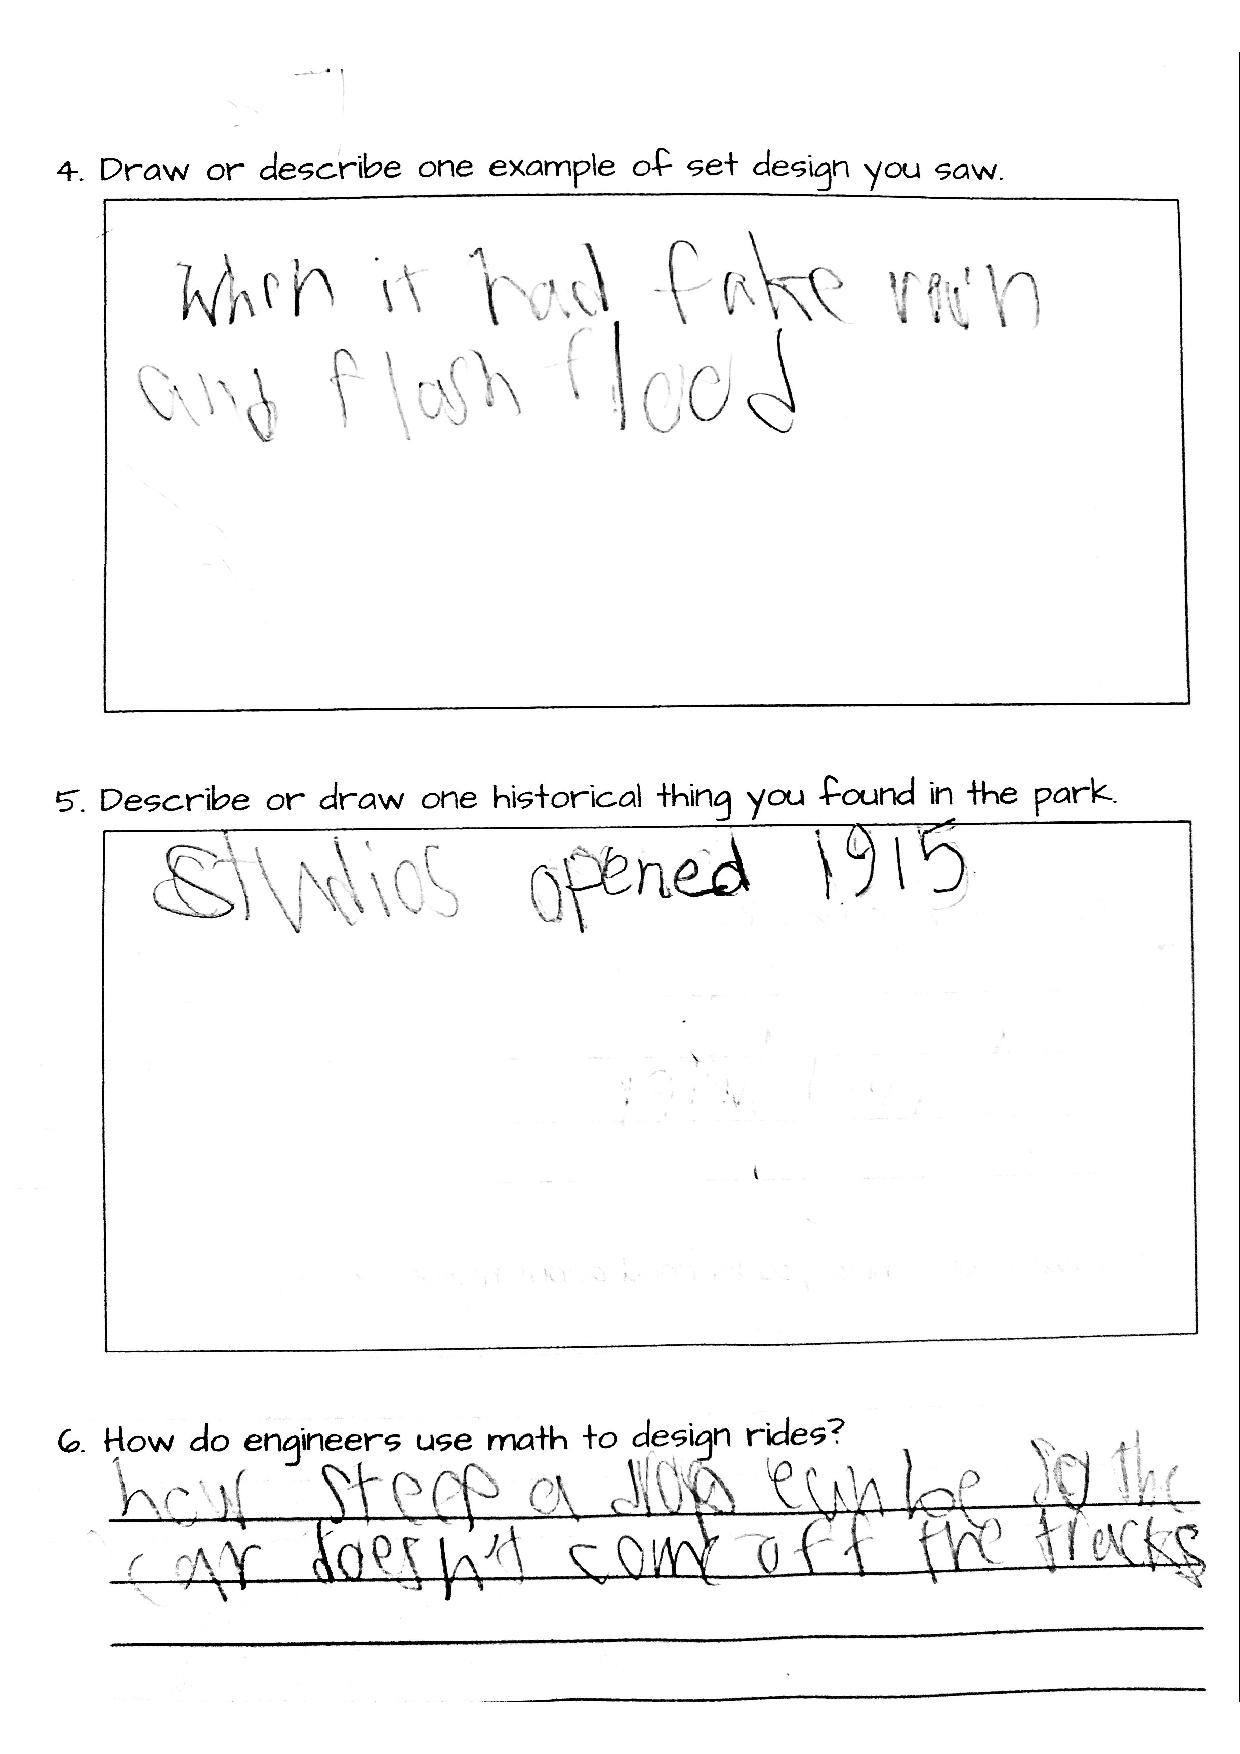 4. Draw or describe one example of set design you saw.
When it had fake rain
and flash flood
5. Describe or draw one historical thing you found in the park.
Studios opened 1915
6. How do engineers use math to design rides?
how steep a drop can be so the
car doesn't come off the tracks